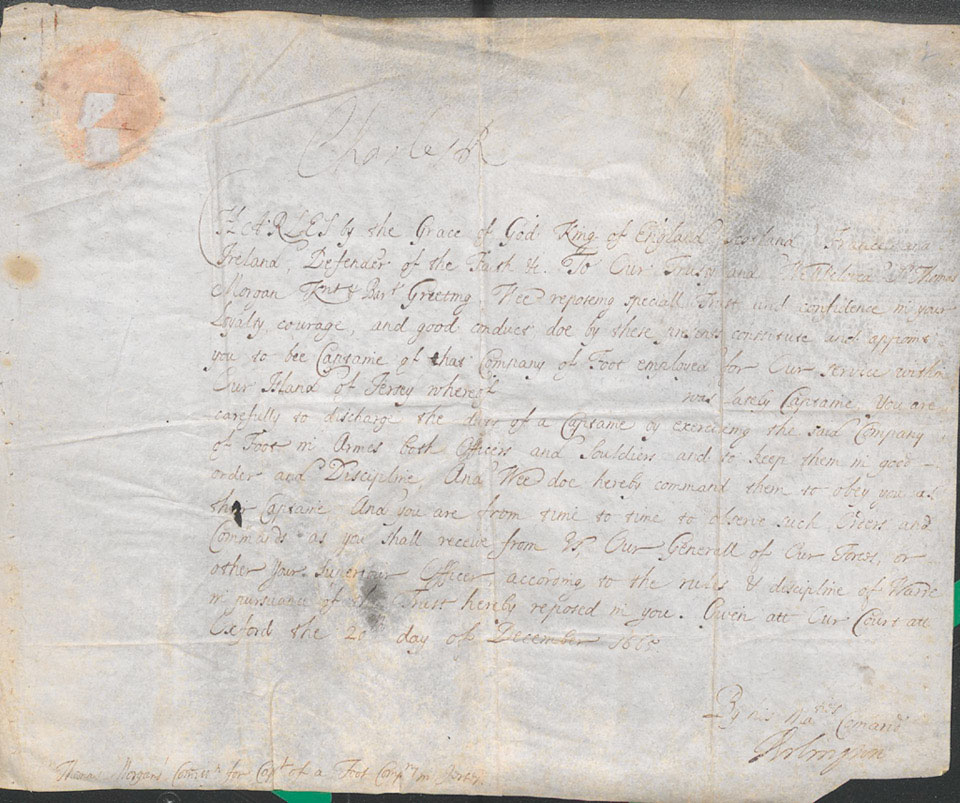 Charles R
CHARLES by the Grace of God King of England Scotland France and
Ireland, Defender of the Faith &c. To Our Trusty and Welbeloved Sr Thomas
Morgan Knt & Bart Greeting. Wee reposing speciall Trust and confidence in your
Loyalty, courage, and good conduct doe by these presents constitute and appoint
you to bee Captaine of that Company of Foot employed for Our service within
Our Island of Jersey whereof was lately Captaine. You are
carefully to discharge the duty of a Captaine by exerciseing the said Company
of Foot in Armes both Officers and Souldiers and to keep them in good
order and Discipline, And Wee doe hereby command them to obey you as
their Captaine And you are from time to time to observe such Orders and
Commands as you shall receive from Us, Our Generall of Our Forces, or
other your Superiour Officer, according to the rules & discipline of Warre
in pursuance of the Trust hereby reposed in you. Given att Our Court att
Oxford the 20 day of December 1665
By his Maties Comand
Arlington
Thomas Morgans Comn for Capt of a Foot Compy in Jersey